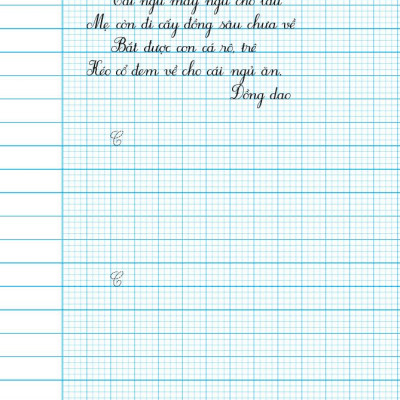 Cái ngủ mày ngủ cho lâu
Mẹ còn đi cấy đồng sâu chưa về
Bắt được con cá rô, trê
Héo cổ đem về cho cái ngủ ăn.
Đồng dao
C
C